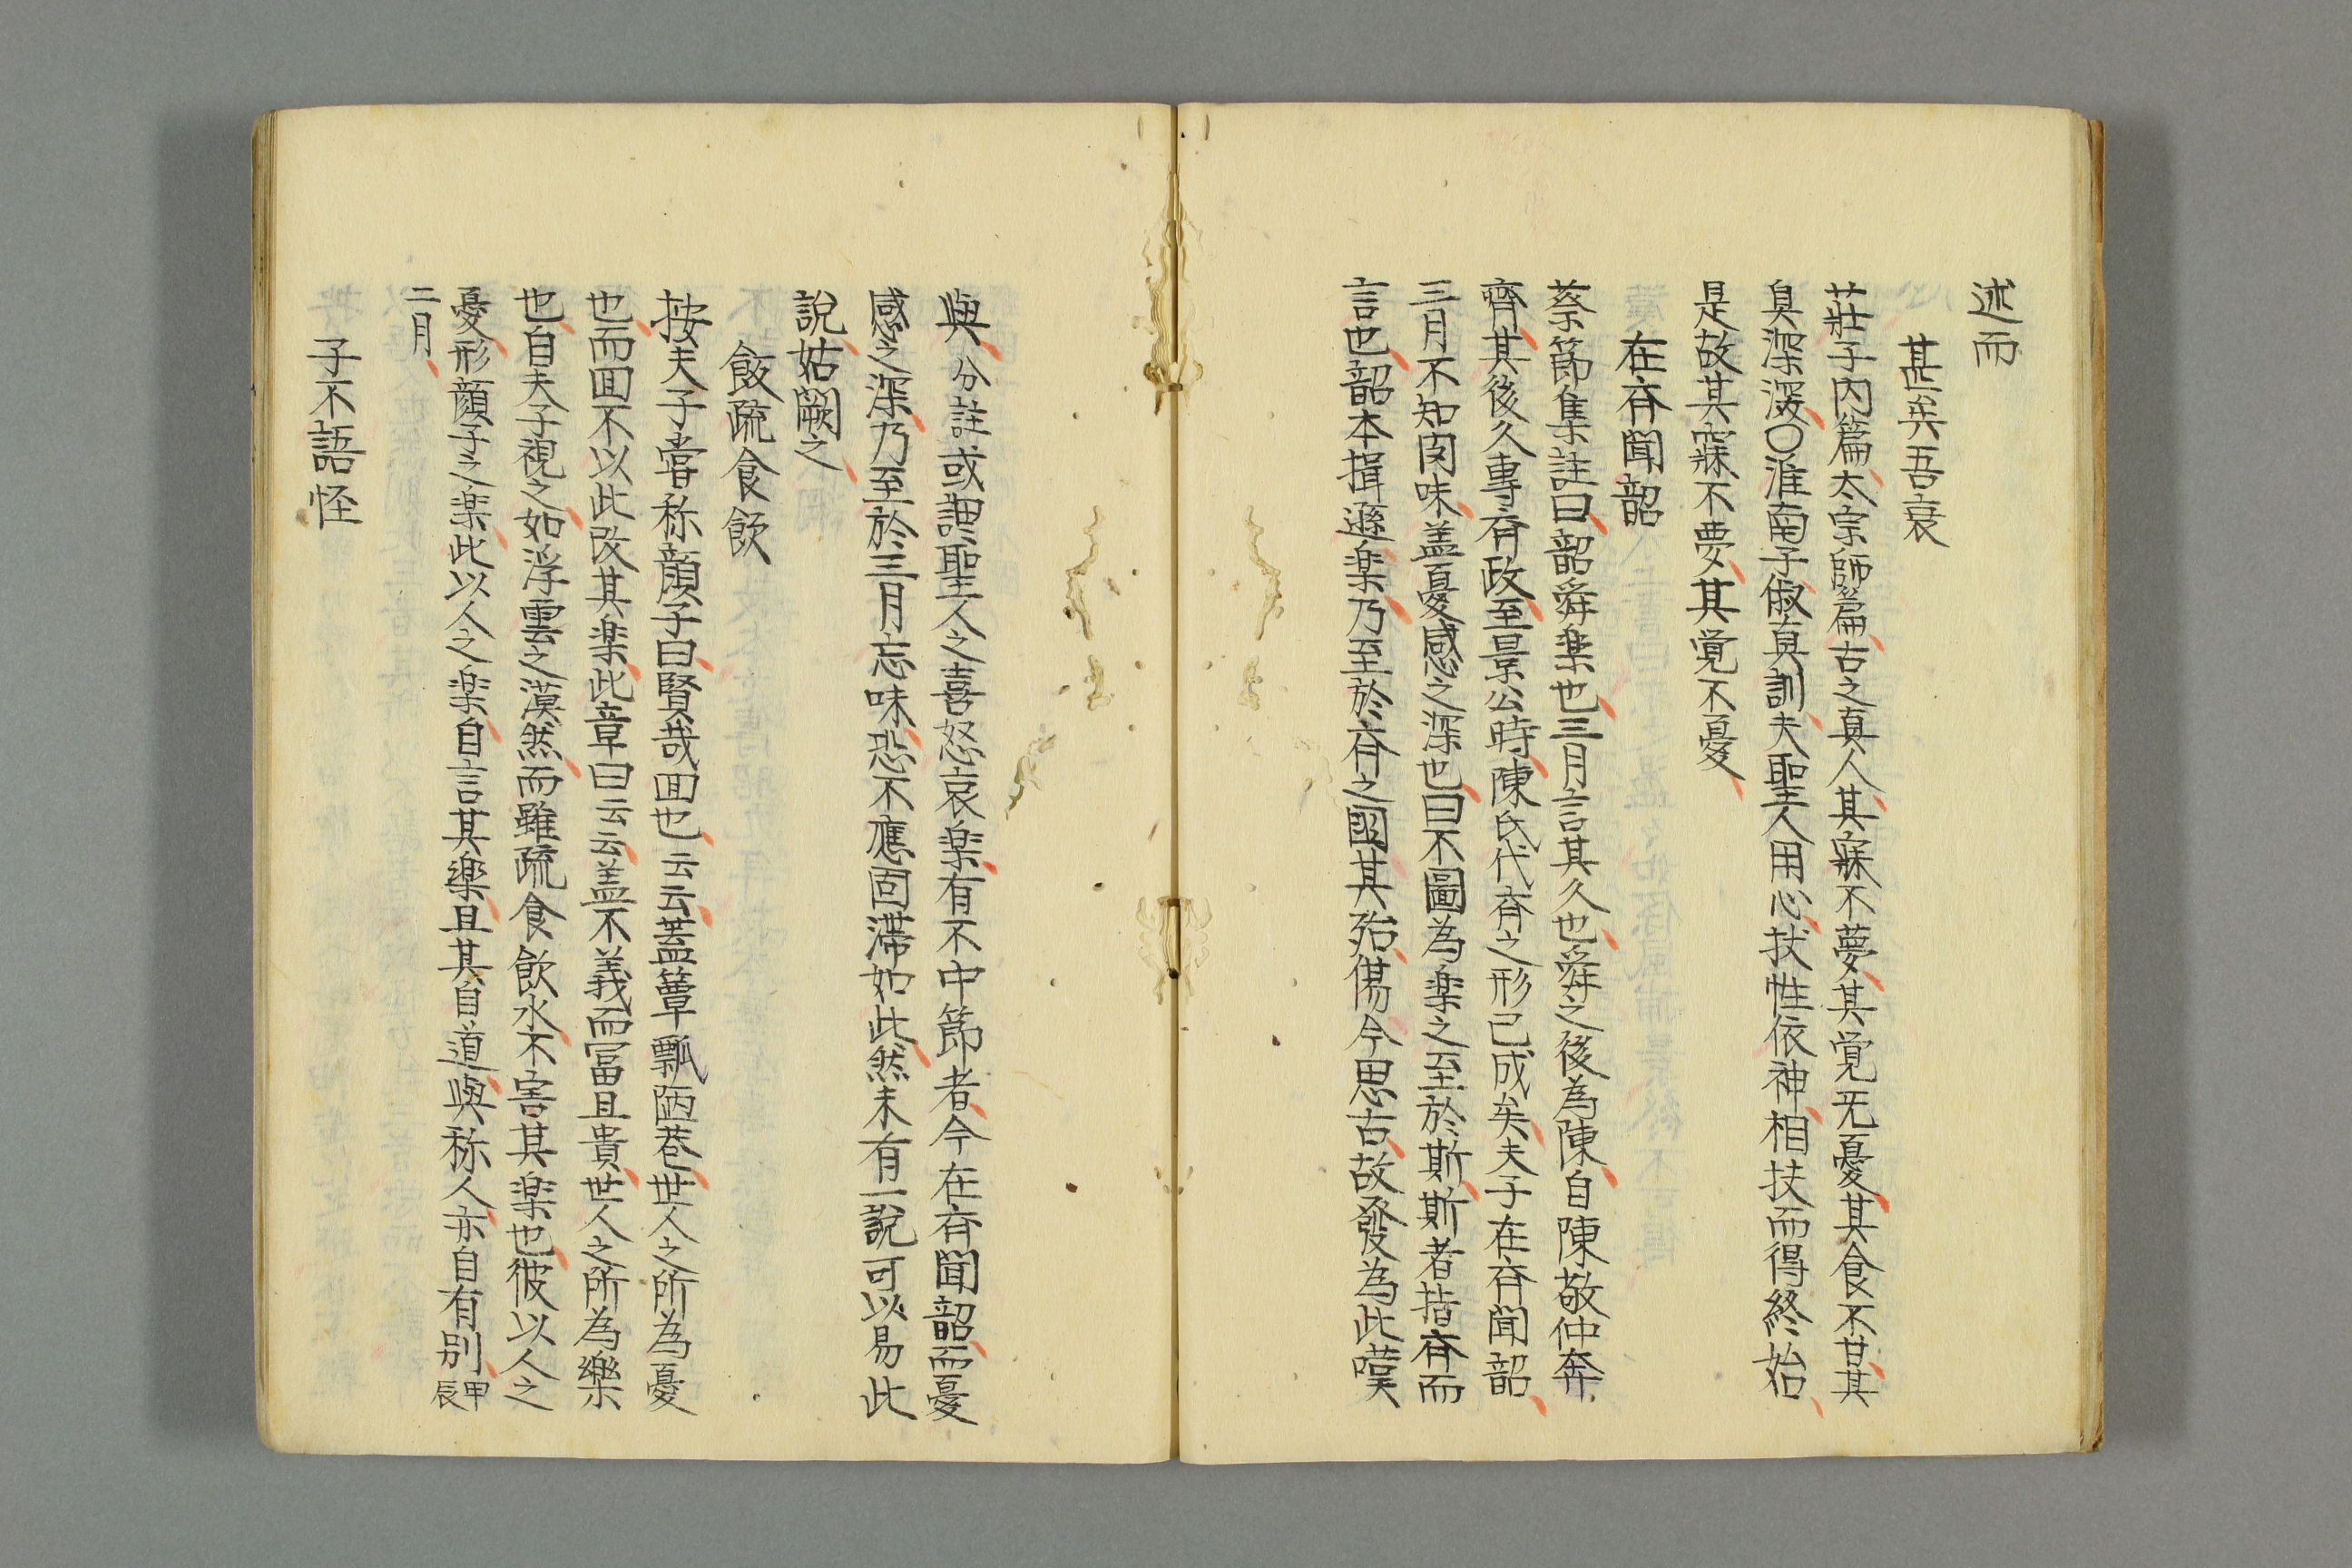 述而
甚矣吾衰
莊子内篇太宗師篇古之真人其寐不夢其覚无憂其食不甘其
息深深〇淮南子俶真訓夫聖人用心扙性依神相扶而得終始
是故其寐不夢其覚不憂
在斉聞韶
蔡節集註曰韶舜樂也三月言其久也舜之後為陳自陳敬仲奔
齊其後久專斉政至景公時陳氏代斉之形已成矣夫子在斉聞韶
三月不知肉味盖憂感之深也曰不圖為楽之至於斯斯者指斉而
言也韶本揖遜楽乃至於斉之國其殆傷今思古故發為此嘆
與分註或謂聖人之喜怒哀楽有不中節者今在斉聞韶而憂
感之深乃至於三月忘味恐不應固滞如此然未有一説可以易此
說姑闕之
飯疏食飲
按夫子嘗称顔子曰賢哉回也云云蓋簞瓢陋巷世人之所為憂
也而回不以此改其楽此章曰云云盖不義而冨且貴世人之所為樂
也自夫子視之如浮雲之漠然而雖疏食飲水不害其楽也彼以人之
憂形顔子之楽此以人之楽自言其樂且其自道與称人亦自有別甲辰
二月
子不語怪